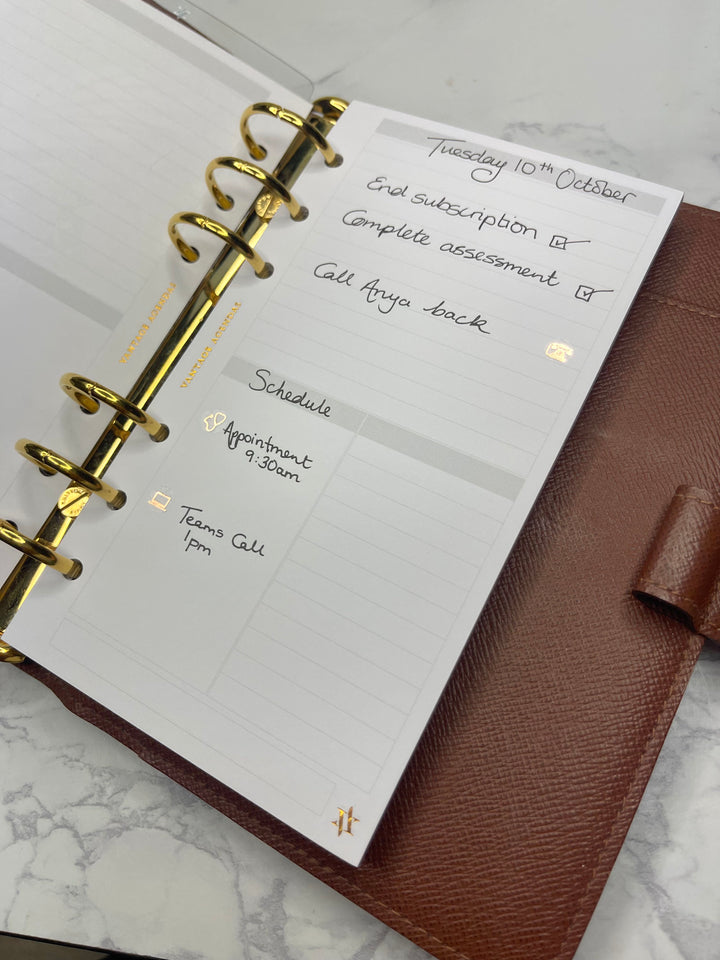 Tuesday 10th October
End subscription
Complete assessment
Call Anya back
Schedule
Appointment
9:30am
Teams Call
1pm